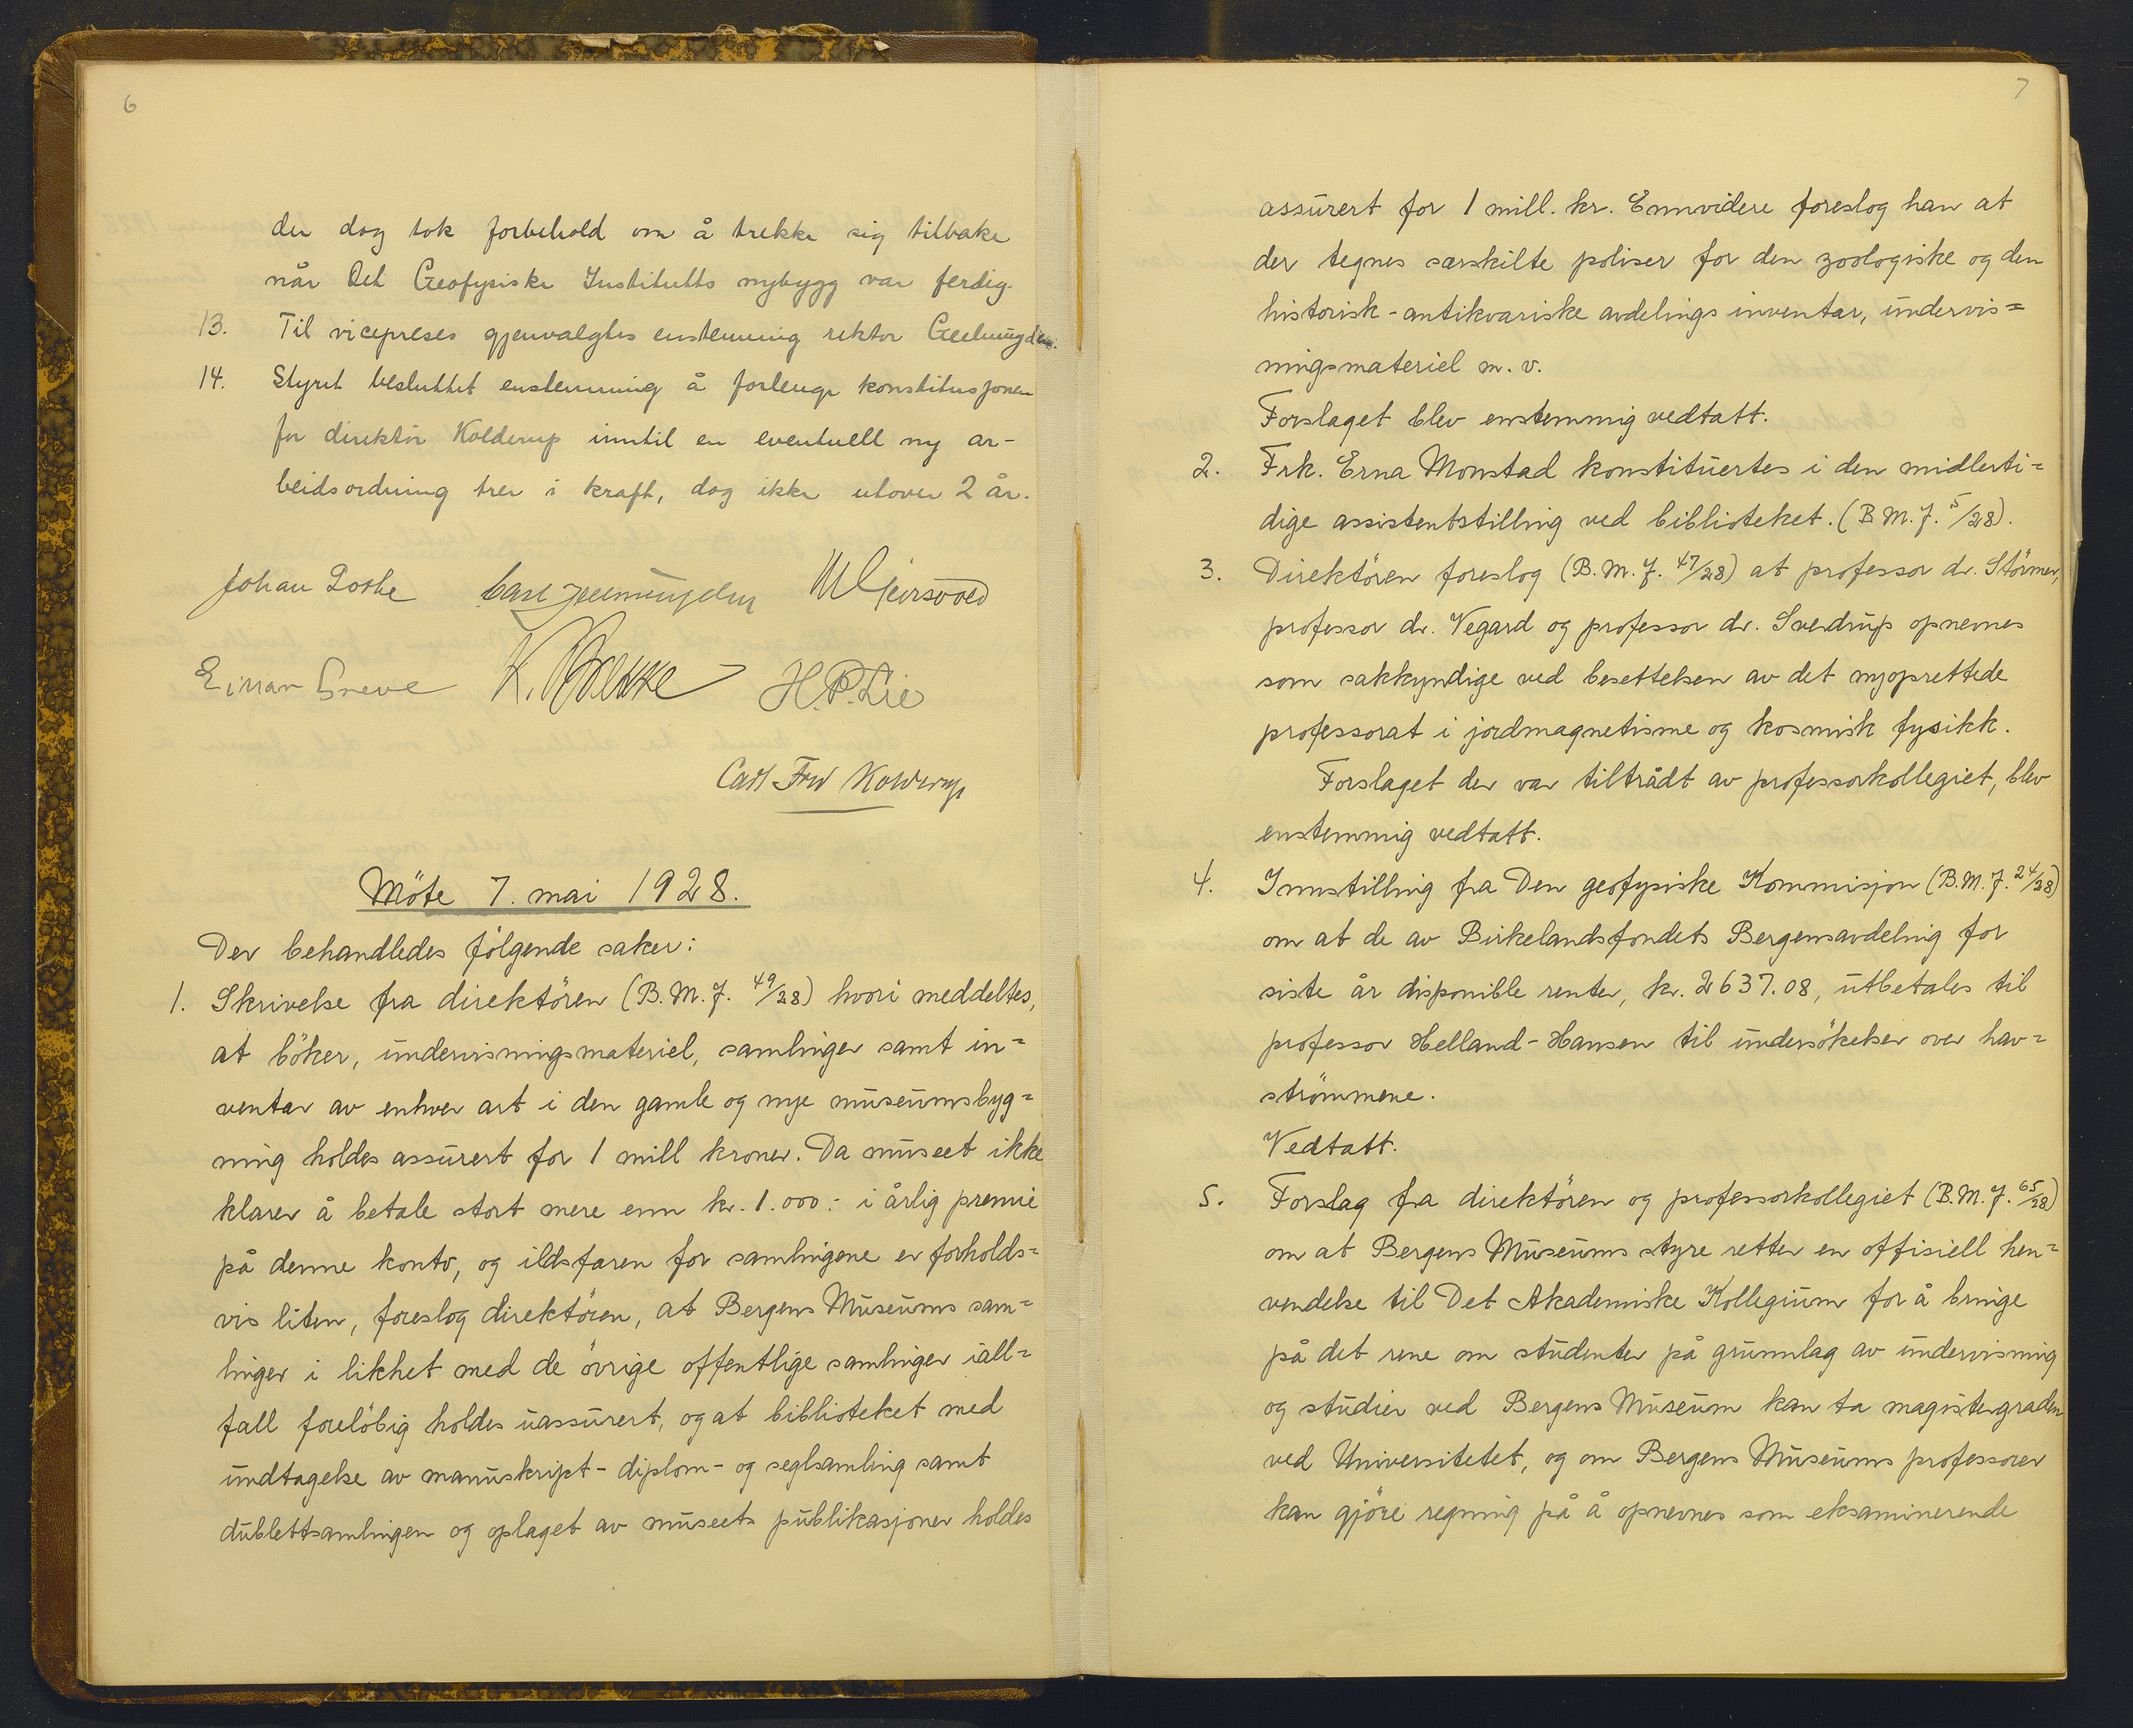 6
der dog tok forbehold om å trekke sig tilbake
når Det Geofysiske Institutts nybygg var ferdig.
13. Til vicepreses gjenvalgtes enstemmig rektor Geelmuyden.
14. Styret besluttet enstemmig å forlenge konstitusjonen
for direktör Kolderup inntil en eventuell ny ar-
beidsordning trer i kraft, dog ikke utover 2 år.
Johan Lothe Carl Geelmuyden M Gjersvold
Einar Greve K. H.P. Lie
Carl Fred Kolderup
Möte 7. mai 1928.
Der behandledes fölgende saker:
1. Skrivelse fra direktören (B.M.J. 49/28) hvori meddeltes,
at böker, undervisningsmateriel, samlinger samt in=
ventar av enhver art i den gamle og nye museumsbyg=
ning holdes assurert for 1 mill kroner. Da museet ikke
klarer å betale stort mere enn kr. 1.000:- i årlig premie
på denne konto, og ildsfaren for samlingene er forholds=
vis liten, foreslog direktören, at Bergens Museums sam=
linger i likhet med de övrige offentlige samlinger iall=
fall forelöbig holdes uassurert, og at biblioteket med
undtagelse av manuskript- diplom- og seglsamling samt
dublettsamlingen og oplaget av museets publikasjoner holdes
7
assurert for 1 mill. kr. Ennvidere foreslog han at
der tegnes særskilte poliser for den zoologiske og den
historisk-antikvariske avdelings inventar, undervis=
ningsmateriel m. v.
Forslaget blev enstemmig vedtatt.
2. Frk. Erna Monstad konstituertes i den midlerti=
dige assistentstilling ved biblioteket. (B.M.J. 5/28).
3. Direktören foreslog (B.M.J. 47/28) at professor dr. Störmer,
professor dr. Vegard og professor dr. Sverdrup opnevnes
som sakkyndige ved besettelsen av det nyoprettede
professorat i jordmagnetisme og kosmisk fysikk.
Forslaget der var tiltrådt av professorkollegiet, blev
enstemmig vedtatt.
4. Innstilling fra Den geofysiske Kommisjon (B.M.J. 24/28)
om at de av Birkelandsfondets Bergensavdeling for
siste år disponible renter, kr. 2637.08, utbetales til
professor Helland-Hansen til undersökelser over hav=
strömmene.
Vedtatt.
5. Forslag fra direktören og professorkollegiet (B.M.J. 65/28)
om at Bergens Museums styre retter en offisiell hen=
vendelse til Det Akademiske Kollegium for å bringe
på det rene om studenter på grunnlag av undervisning
og studier ved Bergens Museum kan ta magistergraden
ved Universitetet, og om Bergens Museums professorer
kan gjöre regning på å opnevnes som eksaminerende